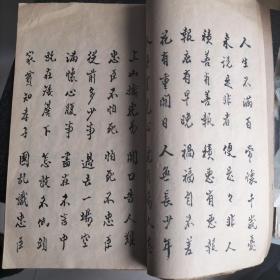 人生不满百 常懷千歲憂
来说是非者 便是々非人
積善有善報 積惡有惡報
报應有早晚 禍福自不差
花有重開日 人無長少年
上山擒虎易 開口告人難
忠臣不怕死 怕死不忠臣
從前多少事 過去一場空
满懷心腹事 盡在不言中
既在矮簷下 怎敢不低頭
家貧知孝子 國亂識忠臣